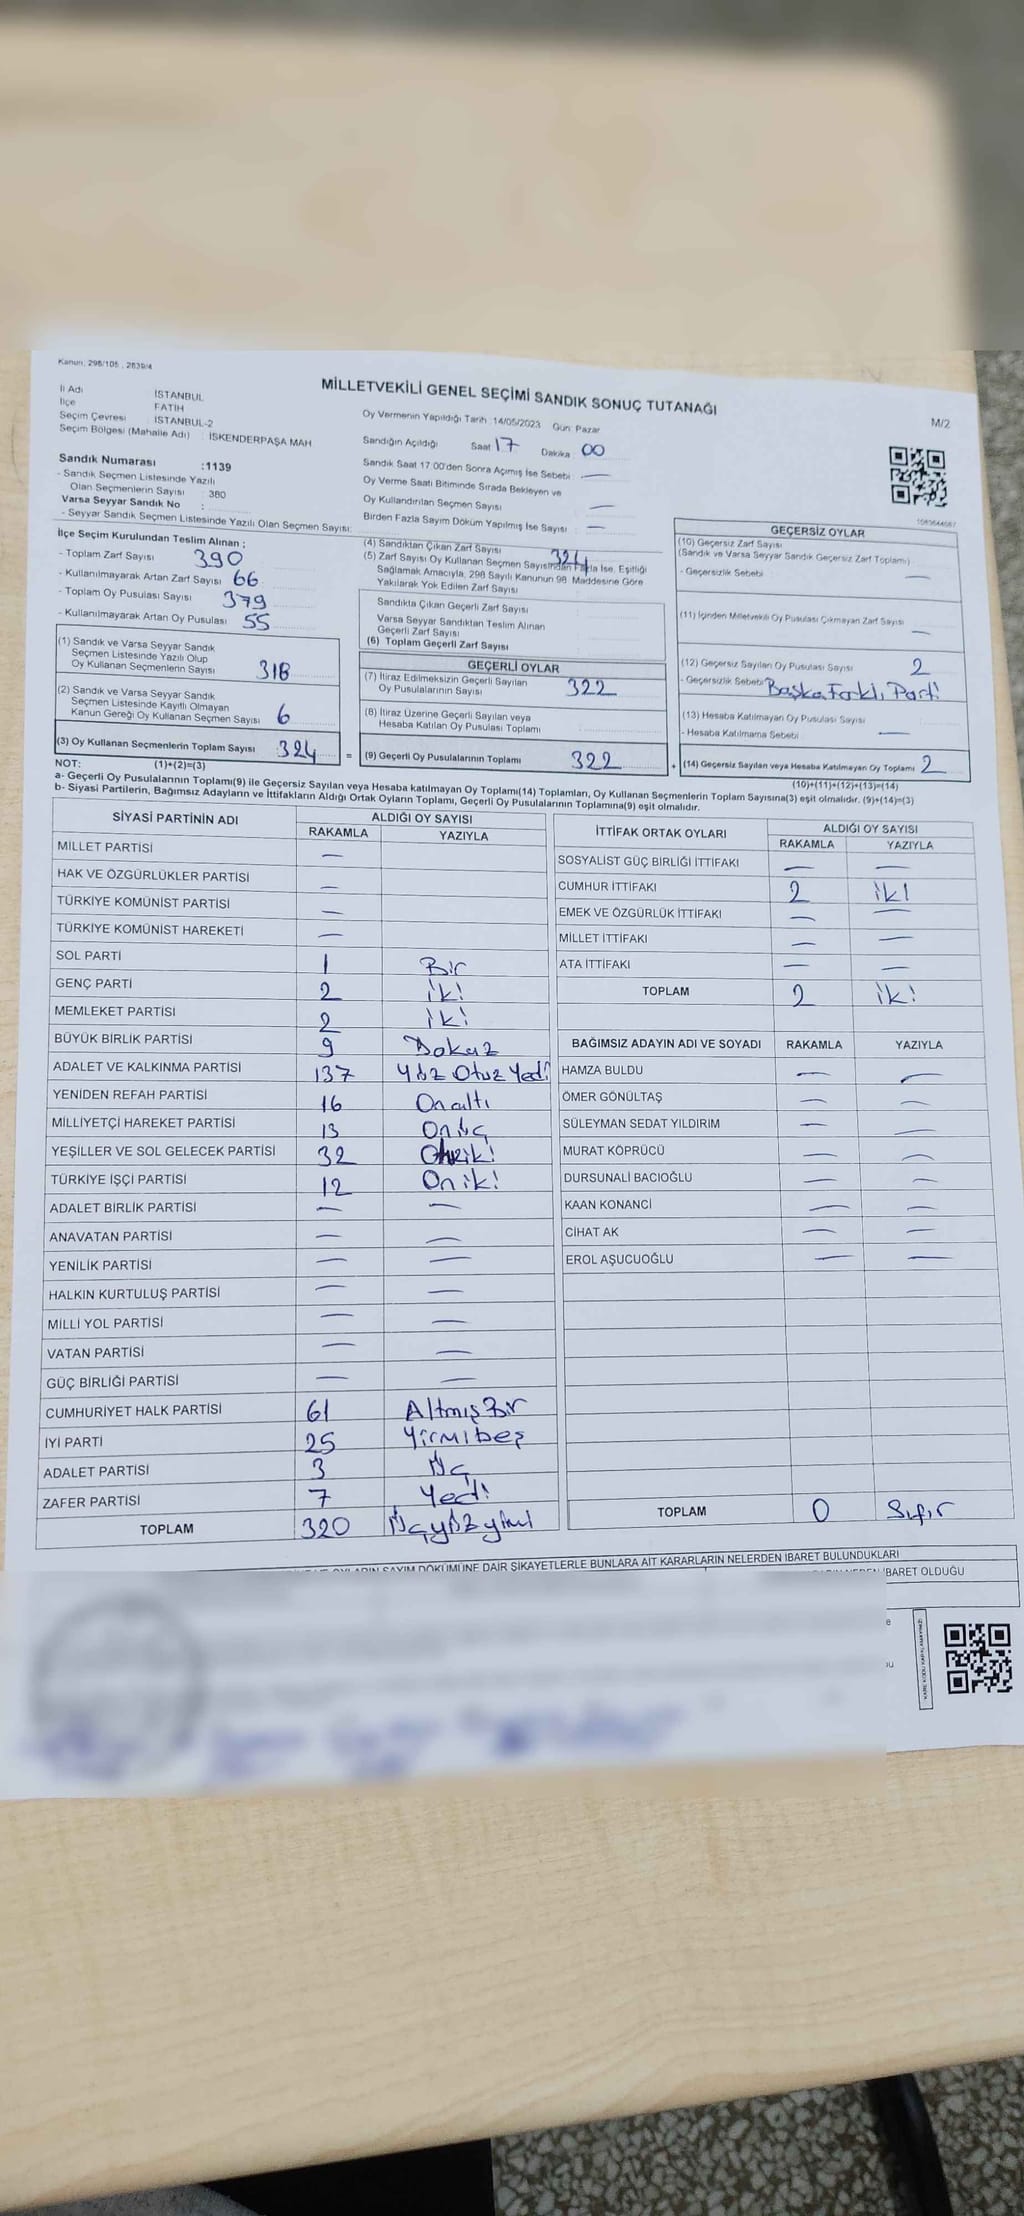 Kanun: 298/105 , 2839/4
MİLLETVEKİLİ GENEL SEÇİMİ SANDIK SONUÇ TUTANAĞI
M/2
İl Adı İSTANBUL
İlçe FATİH
Seçim Çevresi : İSTANBUL-2
Seçim Bölgesi (Mahalle Adı) : İSKENDERPAŞA MAH
Sandık Numarası :1139
- Sandık Seçmen Listesinde Yazılı
Olan Seçmenlerin Sayısı : 380
Varsa Seyyar Sandık No :
- Seyyar Sandık Seçmen Listesinde Yazılı Olan Seçmen Sayısı:
Oy Vermenin Yapıldığı Tarih :14/05/2023 Gün: Pazar
Sandığın Açıldığı Saat 17 Dakika 00
Sandık Saat 17:00'den Sonra Açımış İse Sebebi : —
Oy Verme Saati Bitiminde Sırada Bekleyen ve
Oy Kullandırılan Seçmen Sayısı : —
Birden Fazla Sayım Döküm Yapılmış İse Sayısı : —
İlçe Seçim Kurulundan Teslim Alınan ;
- Toplam Zarf Sayısı 390
- Kullanılmayarak Artan Zarf Sayısı 66
- Toplam Oy Pusulası Sayısı 379
- Kullanılmayarak Artan Oy Pusulası 55
(1) Sandık ve Varsa Seyyar Sandık
Seçmen Listesinde Yazılı Olup
Oy Kullanan Seçmenlerin Sayısı 318
(2) Sandık ve Varsa Seyyar Sandık
Seçmen Listesinde Kayıtlı Olmayan
Kanun Gereği Oy Kullanan Seçmen Sayısı 6
(3) Oy Kullanan Seçmenlerin Toplam Sayısı 324 =
(4) Sandıktan Çıkan Zarf Sayısı 324
(5) Zarf Sayısı Oy Kullanan Seçmen Sayısından Fazla İse, Eşitliği
Sağlamak Amacıyla, 298 Sayılı Kanunun 98. Maddesine Göre
Yakılarak Yok Edilen Zarf Sayısı
Sandıkta Çıkan Geçerli Zarf Sayısı
Varsa Seyyar Sandıktan Teslim Alınan
Geçerli Zarf Sayısı
(6) Toplam Geçerli Zarf Sayısı
GEÇERLİ OYLAR
(7) İtiraz Edilmeksizin Geçerli Sayılan
Oy Pusulalarının Sayısı 322
(8) İtiraz Üzerine Geçerli Sayılan veya
Hesaba Katılan Oy Pusulası Toplamı
(9) Geçerli Oy Pusulalarının Toplamı 322 +
GEÇERSİZ OYLAR
(10) Geçersiz Zarf Sayısı
(Sandık ve Varsa Seyyar Sandık Geçersiz Zarf Toplamı)
- Geçersizlik Sebebi —
(11) İçinden Milletvekili Oy Pusulası Çıkmayan Zarf Sayısı —
(12) Geçersiz Sayılan Oy Pusulası Sayısı 2
- Geçersizlik Sebebi Başka Farklı Parti
(13) Hesaba Katılmayan Oy Pusulası Sayısı
- Hesaba Katılmama Sebebi : —
(14) Geçersiz Sayılan veya Hesaba Katılmayan Oy Toplamı 2
NOT: (1)+(2)=(3) (10)+(11)+(12)+(13)=(14)
a- Geçerli Oy Pusulalarının Toplamı(9) ile Geçersiz Sayılan veya Hesaba katılmayan Oy Toplamı(14) Toplamları, Oy Kullanan Seçmenlerin Toplam Sayısına(3) eşit olmalıdır. (9)+(14)=(3)
b- Siyasi Partilerin, Bağımsız Adayların ve İttifakların Aldığı Ortak Oyların Toplamı, Geçerli Oy Pusulalarının Toplamına(9) eşit olmalıdır.
SİYASİ PARTİNİN ADI ALDIĞI OY SAYISI
RAKAMLA YAZIYLA
MİLLET PARTİSİ —
HAK VE ÖZGÜRLÜKLER PARTİSİ —
TÜRKİYE KOMÜNİST PARTİSİ —
TÜRKİYE KOMÜNİST HAREKETİ —
SOL PARTİ 1 Bir
GENÇ PARTİ 2 iki
MEMLEKET PARTİSİ 2 iki
BÜYÜK BİRLİK PARTİSİ 9 Dokuz
ADALET VE KALKINMA PARTİSİ 137 Yüz Otuz Yedi
YENİDEN REFAH PARTİSİ 16 Onaltı
MİLLİYETÇİ HAREKET PARTİSİ 13 Onüç
YEŞİLLER VE SOL GELECEK PARTİSİ 32
TÜRKİYE İŞÇİ PARTİSİ 12 Oniki
ADALET BİRLİK PARTİSİ — —
ANAVATAN PARTİSİ — —
YENİLİK PARTİSİ — —
HALKIN KURTULUŞ PARTİSİ — —
MİLLİ YOL PARTİSİ — —
VATAN PARTİSİ — —
GÜÇ BİRLİĞİ PARTİSİ — —
CUMHURİYET HALK PARTİSİ 61 Altmış Bir
İYİ PARTİ 25 Yirmibeş
ADALET PARTİSİ 3 Üç
ZAFER PARTİSİ 7 Yedi
TOPLAM 320 Üçyüzyirmi
İTTİFAK ORTAK OYLARI ALDIĞI OY SAYISI
RAKAMLA YAZIYLA
SOSYALİST GÜÇ BİRLİĞİ İTTİFAKI — —
CUMHUR İTTİFAKI 2 iki
EMEK VE ÖZGÜRLÜK İTTİFAKI — —
MİLLET İTTİFAKI — —
ATA İTTİFAKI — —
TOPLAM 2 iki
BAĞIMSIZ ADAYIN ADI VE SOYADI RAKAMLA YAZIYLA
HAMZA BULDU — —
ÖMER GÖNÜLTAŞ — —
SÜLEYMAN SEDAT YILDIRIM — —
MURAT KÖPRÜCÜ — —
DURSUNALİ BACIOĞLU — —
KAAN KONANCİ — —
CİHAT AK — —
EROL AŞUCUOĞLU — —
TOPLAM 0 Sıfır
SAYIM DÖKÜMÜNE DAİR ŞİKAYETLERLE BUNLARA AİT KARARLARIN NELERDEN İBARET BULUNDUKLARI
İBARET OLDUĞU